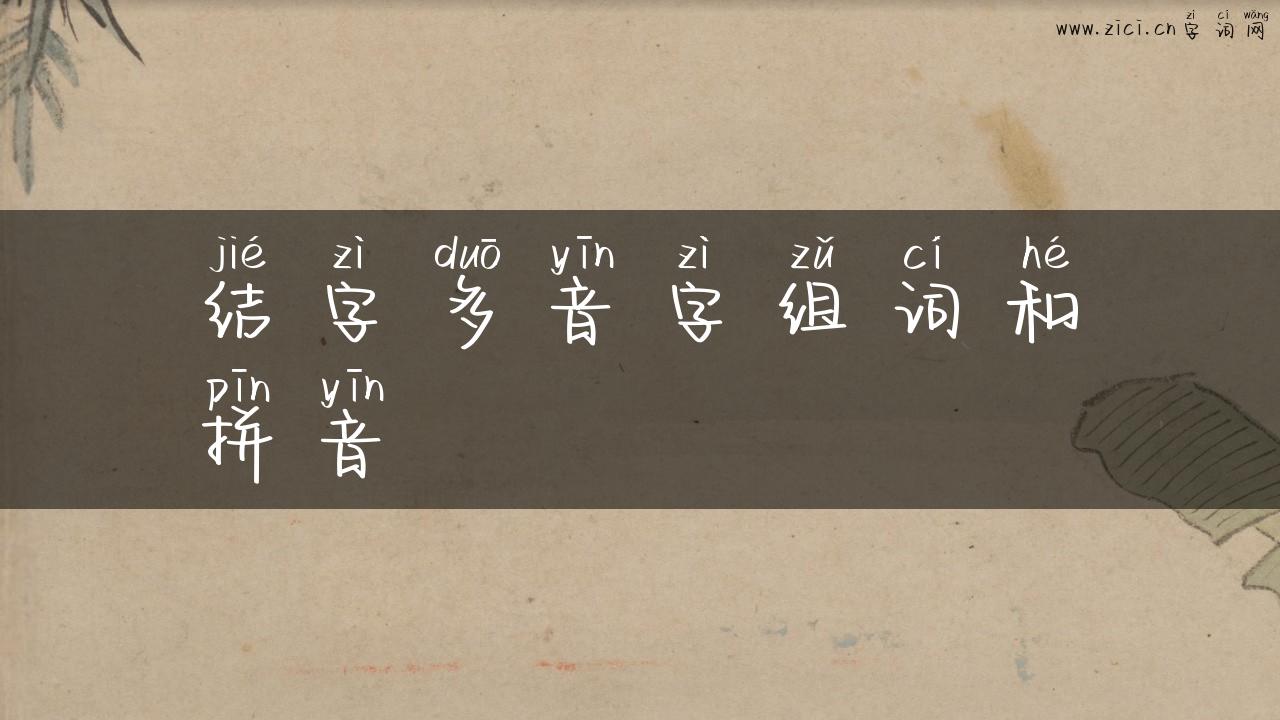 zì cí wǎng
www.zici.cn 字 词 网
jié zì duō yīn zì zǔ cí hé
结 字 多 音 字 组 词 和
pīn yīn
拼 音